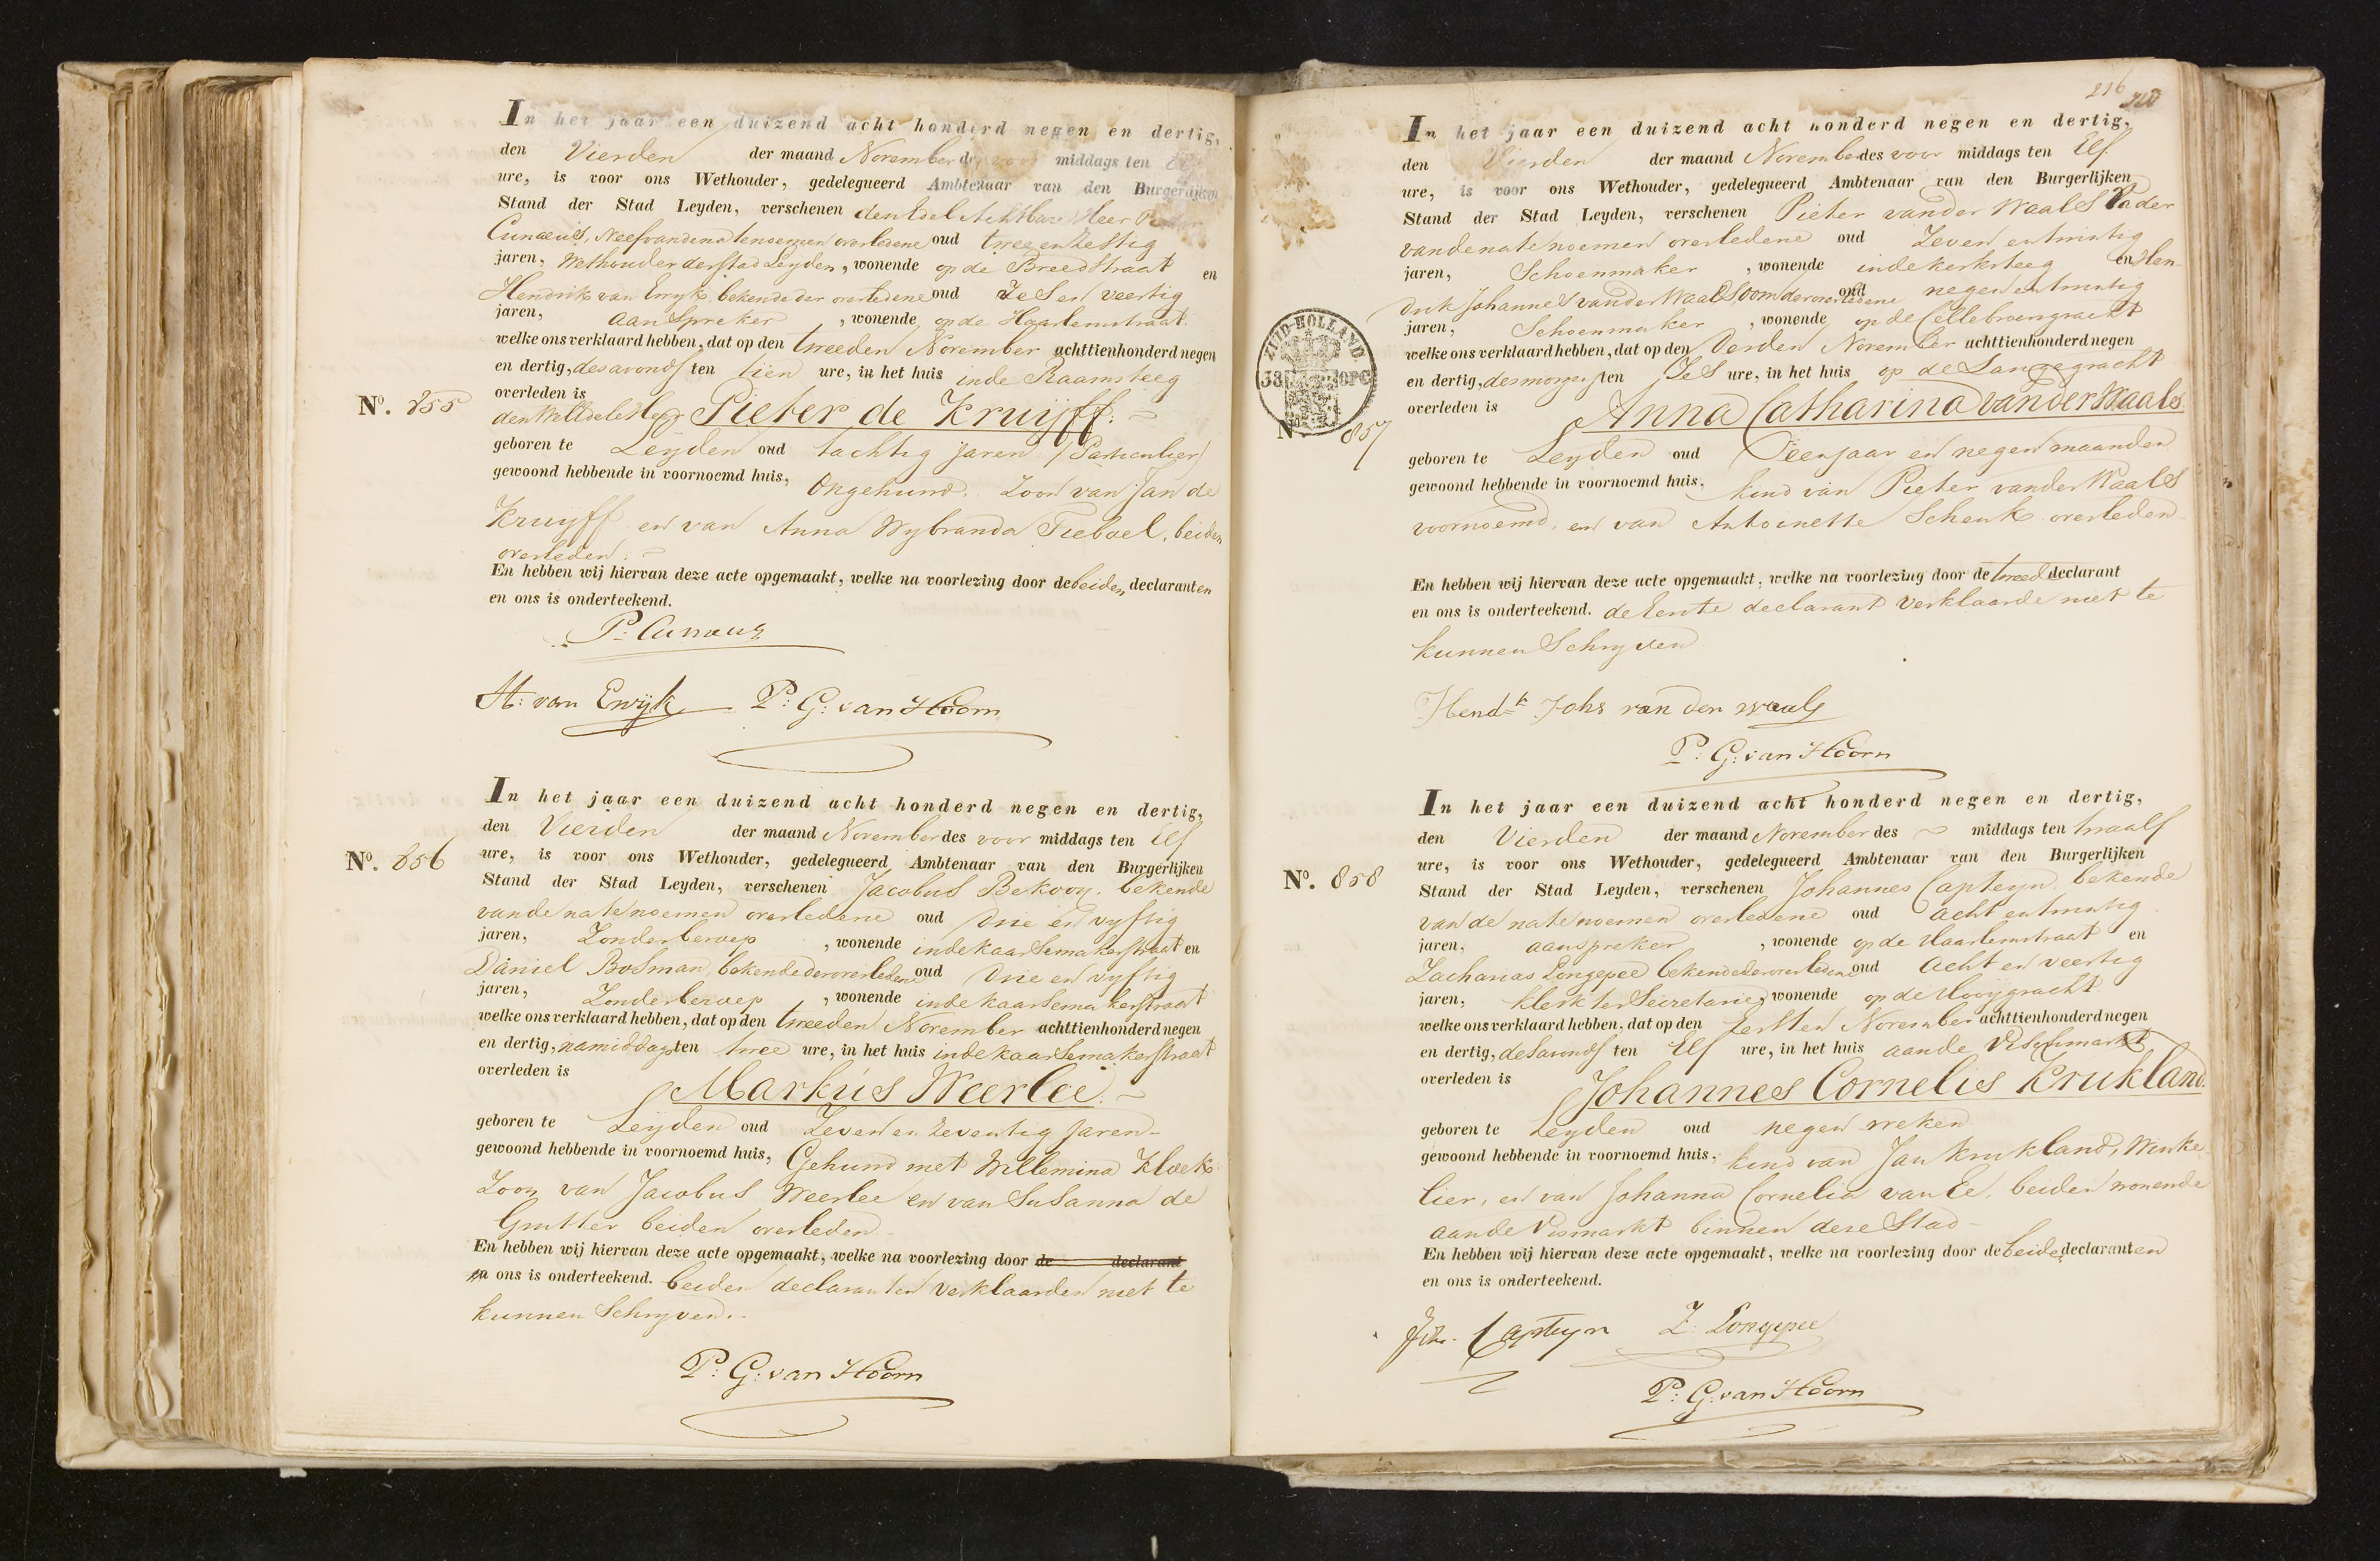 In het jaar een duizend acht honderd negen en dertig,
den Vierden der maand November des voor middags ten
ure, is voor ons Wethouder, gedelegueerd Ambtenaar van den Burgerlijken
Stand der Stad Leyden, verschenen den Edel Achtbare Heer Pieter
Cunaeus, Neef van den na tenoemen overledene oud twee en zestig
jaren, Wethouder der stad Leyden, wonende op de Breedstraat en
Hendrik van Ewyk, bekende der overledene oud Zes en veertig
jaren, aanspreker, wonende op de Haarlemstraat.
welke ons verklaard hebben, dat op den tweeden November achttienhonderd negen
en dertig, des avonds ten tien ure, in het huis inde Raamsteeg
overleden is
No. 855
den WelEdele Heer Pieter de Kruijff:
geboren te Leyden oud tachtig jaren (Particulier)
gewoond hebbende in voornoemd huis, Ongehuwd. Zoon van Jan de
Kruyff en van Anna Wybranda Tieboel, beiden
overleden.
En hebben wij hiervan deze acte opgemaakt, welke na voorlezing door de beiden declaranten
en ons is onderteekend.
P: Cunaeus
H: van Ewijk P: G: van Hoorn
In het jaar een duizend acht honderd negen en dertig,
den Vierden der maand November des voor middags ten Elf
No. 856
ure, is voor ons Wethouder, gedelegueerd Ambtenaar van den Burgerlijken
Stand der Stad Leyden, verschenen Jacobus Bekooy. bekende
van de na te noemen overledene oud Drie en vyftig
jaren, Zonder beroep, wonende inde kaarsemakerstraat en
Daniel Bosman, bekende der overledene oud Drie en vyftig
jaren, Zonder beroep, wonende inde kaarsemakerstraat
welke ons verklaard hebben, dat op den tweeden November achttienhonderd negen
en dertig, namiddags ten twee ure, in het huis inde kaarsemakerstraat
overleden is
Markus Weerlee.
geboren te Leyden oud Zeven en zeventig jaren
gewoond hebbende in voornoemd huis, Gehuwd met Willemina Kloek
Zoon van Jacobus Weerlee en van Susanna de
Grutter beiden overleden
En hebben wij hiervan deze acte opgemaakt, welke na voorlezing door de declarant
en ons is onderteekend. beiden declaranten verklaarden niet te
kunnen Schryven.
P: G: van Hoorn
216
In het jaar een duizend acht honderd negen en dertig,
den Vierden der maand November des voor middags ten Elf
ure, is voor ons Wethouder, gedelegueerd Ambtenaar van den Burgerlijken
Stand der Stad Leyden, verschenen Pieter van der Waals Vader
van de na te noemen overledene oud Zeven en twintig
jaren, Schoenmaker, wonende inde kerksteeg en Hen
drik Johannes van der Waals Oom der overledene oud negen en twintig
jaren, Schoenmaker, wonende op de Cellebroersgracht
welke ons verklaard hebben, dat op den Derden November achttienhonderd negen
en dertig, des morgens ten Zes ure, in het huis op de Langegracht
ZUID-HOLLAND
38 OPC
overleden is
Anna Catharina van der Waals
No. 857
geboren te Leyden oud Een jaar en negen maanden
gewoond hebbende in voornoemd huis, kind van Pieter van der Waals
voornoemd, en van Antoinette Schenk overleden
En hebben wij hiervan deze acte opgemaakt, welke na voorlezing door de tweede declarant
en ons is onderteekend. de Eerste declarant verklaarde niet te
kunnen Schryven
Hendk Johs van der Waals
P: G: van Hoorn
In het jaar een duizend acht honderd negen en dertig,
den Vierden der maand November des middags ten twaalf
ure, is voor ons Wethouder, gedelegueerd Ambtenaar van den Burgerlijken
No. 858
Stand der Stad Leyden, verschenen Johannes Capteyn, bekende
van de na te noemen overledene oud acht en twintig
jaren, aanspreker, wonende op de Haarlemstraat en
Zacharias Longepee bekende der overledene oud Acht en veertig
jaren, klerk ter Secretarie, wonende op de Hooygracht
welke ons verklaard hebben, dat op den Eersten November achttienhonderd negen
en dertig, des avonds ten Elf ure, in het huis aan de Vischmarkt
overleden is
Johannes Cornelis Krukland.
geboren te Leyden oud negen weken
gewoond hebbende in voornoemd huis, kind van Jan Krukland, Winke
lier, en van Johanna Cornelia van Ee, beiden wonende
aan de Vismarkt binnen deze Stad
En hebben wij hiervan deze acte opgemaakt, welke na voorlezing door de beide declaranten
en ons is onderteekend.
Capteyn Z: Longepee
P: G: van Hoorn